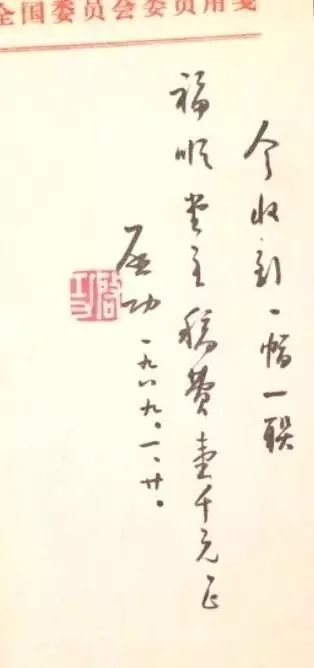 全国委员会委员用笺
今收到一幅一联
福顺堂主稿费壹千元正
启功
一九八九.一.廿.
启功